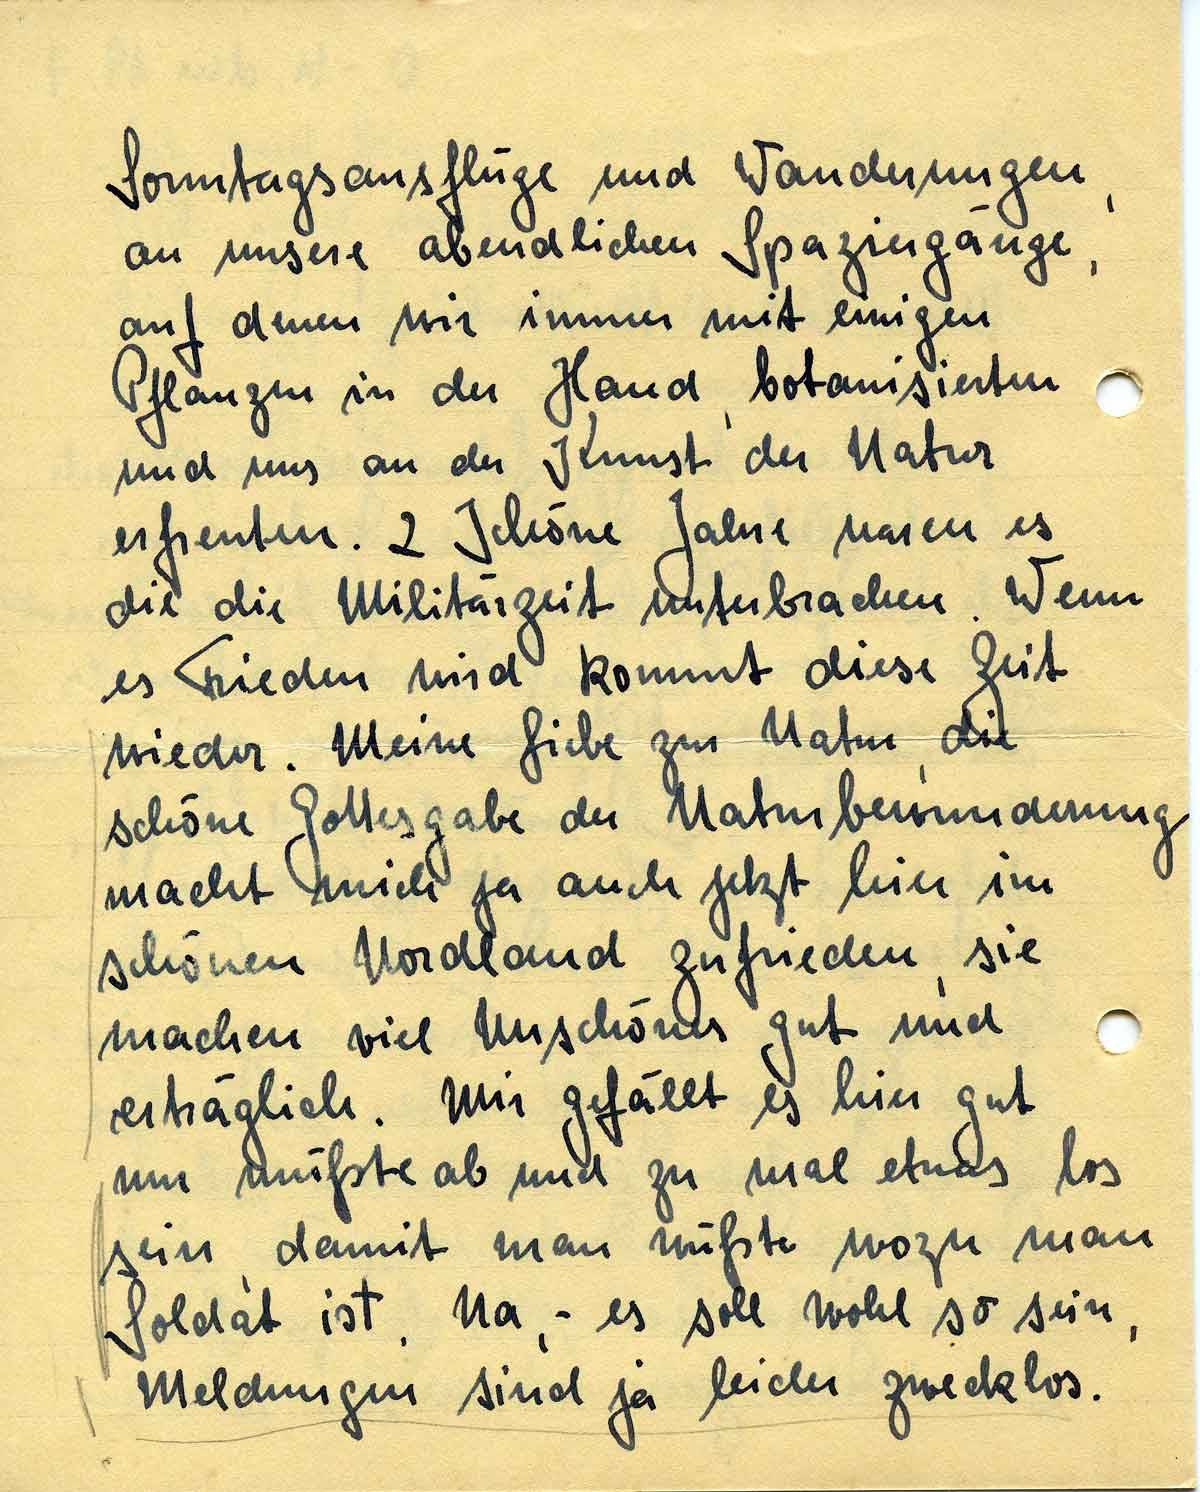 Sonntagsausflüge und Wanderungen,
an unsere abendlichen Spaziergänge,
auf denen wir immer mit einigen
Pflanzen in der Hand, botanisierten
und uns an der Kunst der Natur
erfreuten. 2 Schöne Jahre waren es
die die Militärzeit unterbrachen. Wenn
es Frieden wird kommt diese Zeit
wieder. Meine Liebe zur Natur, die
schöne Gottesgabe der Naturbewunderung
macht mich ja auch jetzt hier im
schönen Nordland zufrieden, sie
machen viel Unschönes gut und
erträglich. Mir gefällt es hier gut
nur müßte ab und zu mal etwas los
sein, damit man wüßte wozu man
Soldat ist. Na,- es soll wohl so sein,
Meldungen sind ja leider zwecklos.